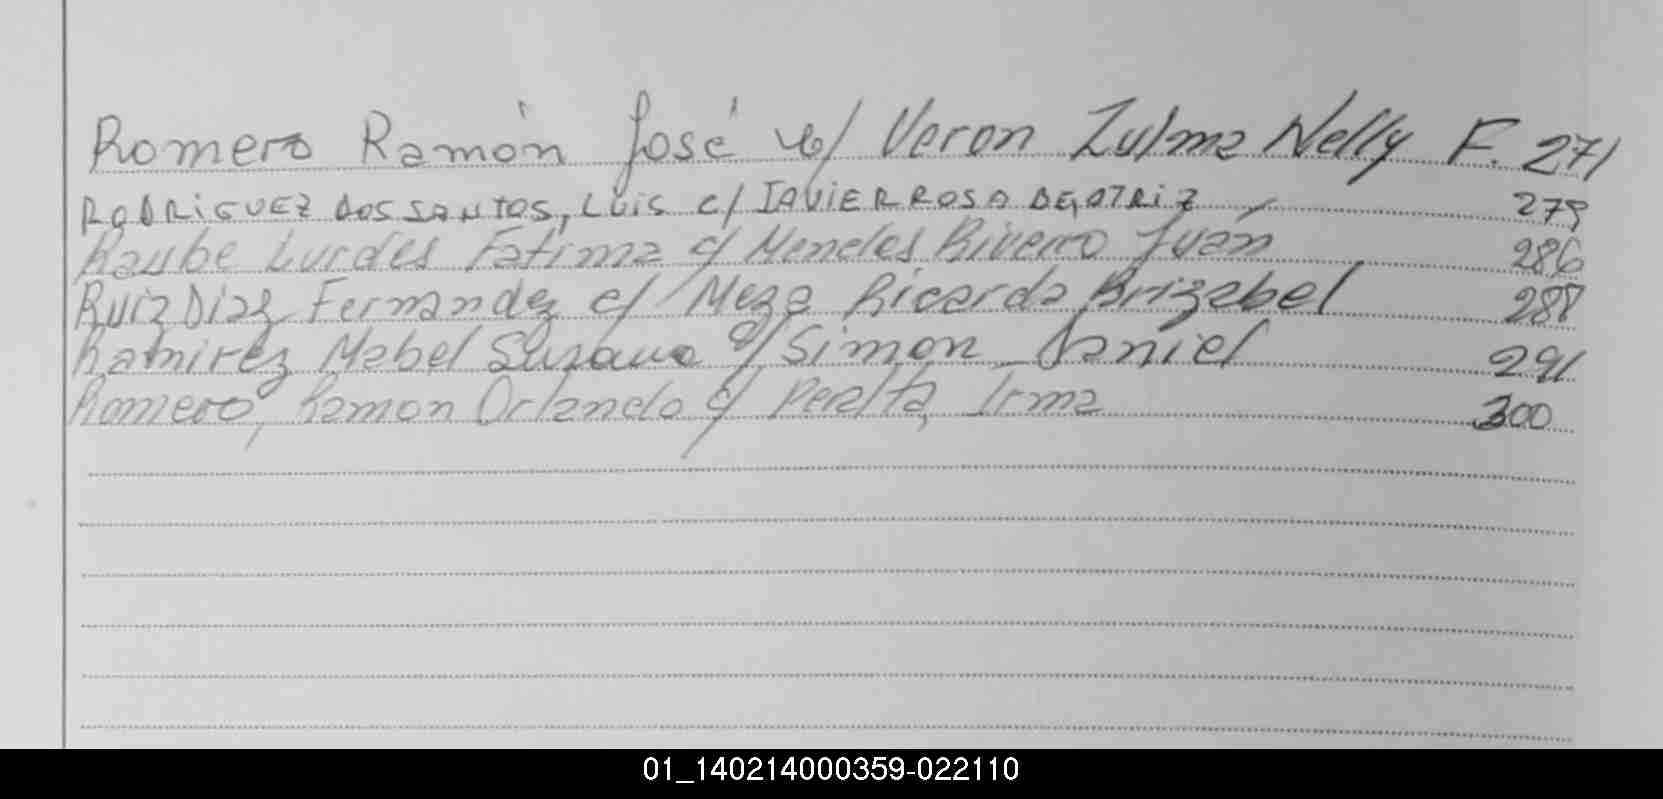 Romero Ramón José c/ Veron Zulma Nelly F. 271
RODRIGUEZ DOS SANTOS, LUIS c/ JAVIER ROSA BEATRIZ 279
Raube Lurdes Fatima c/ Meneles Rivero Juán 286
Ruiz Diaz Fernandez c/ Meza Ricarda Brizabel 288
Ramirez Mabel Susana c/ Simon Daniel 291
Romero, Ramon Orlando c/ Peralta, Irma 300
01_140214000359-022110